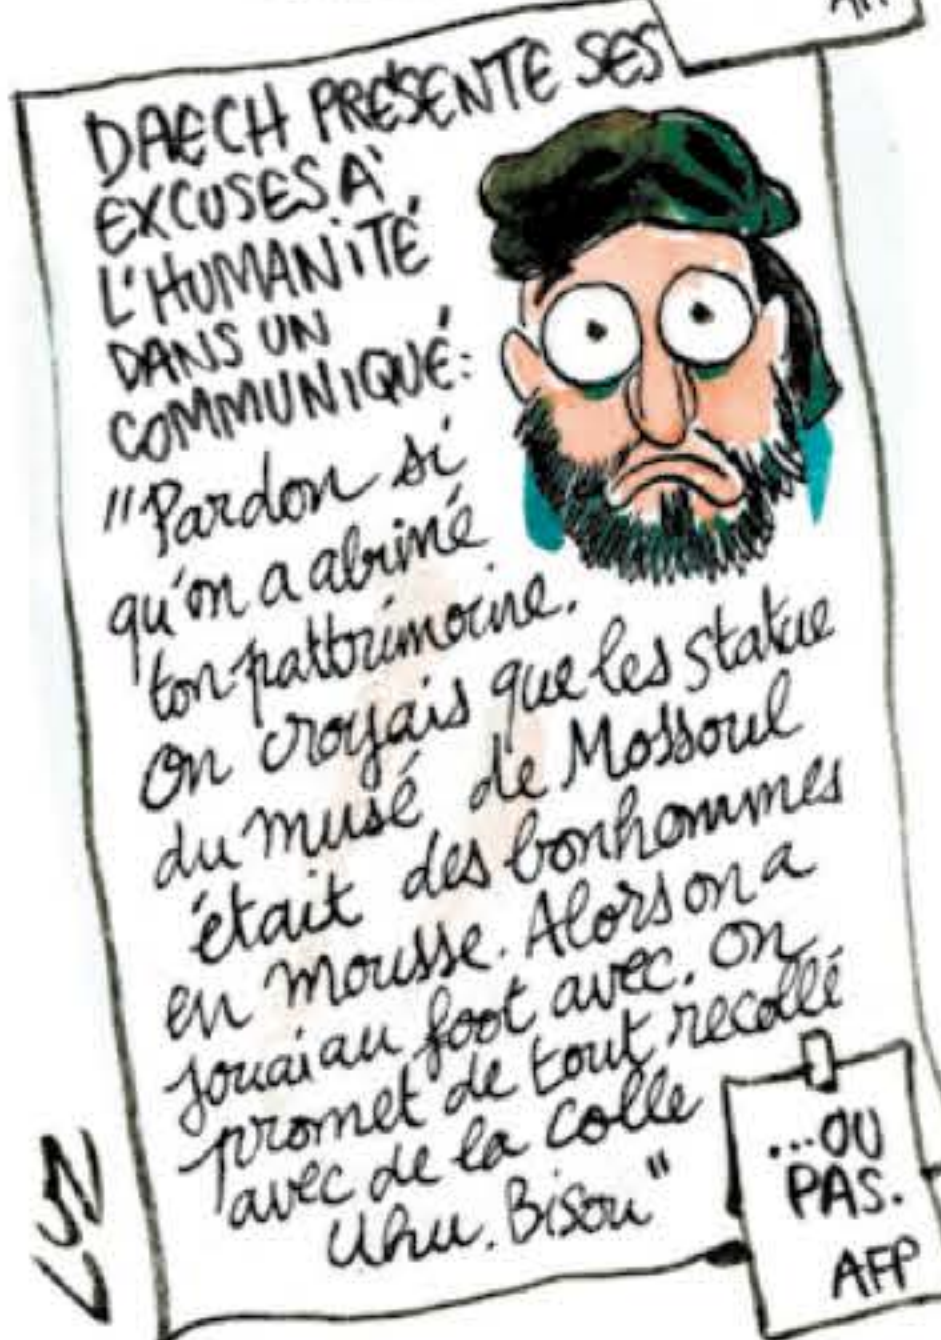 DAECH PRÉSENTE SES
EXCUSES À
L'HUMANITÉ
DANS UN
COMMUNIQUÉ:
"Pardon si
qu'on a abrimé
ton pattrimoine.
On croyais que les statue
du musé de Mossoul
était des bonhommes
en mousse. Alors on a
jouai au foot avec. On
promet de tout recollé
avec de la colle
Uhu. Bisou"
...OU
PAS.
AFP
LUZ